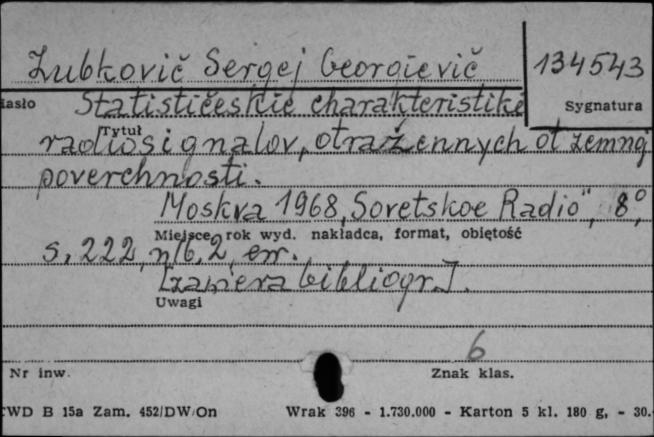 Zubkovič Sergej Georgievič
134543
iasło
Sygnatura
Statističeskie charakteristiki
Tytuł
radiosignalov, otražennych ot zemnoj
poverchnosti.
Moskva 1968, "Sovetskoe Radio", 8°,
Miejsce, rok wyd. nakładca, format, objętość
s. 222, n/b. 2, err.
[zawiera bibliogr.].
Uwagi
6
Nr inw.
Znak klas.
CWD B 15a Zam. 452/DW/On Wrak 396 - 1.730.000 - Karton 5 kl. 180 g, - 30.